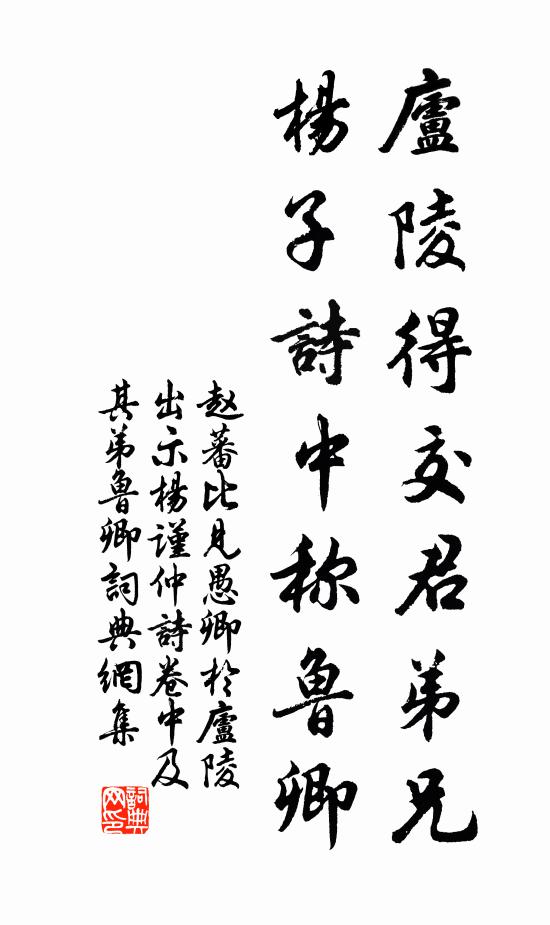 廬陵得交君弟兄
楊子詩中称魯卿
赵蕃比見愚卿於廬陵
出示楊謹仲詩卷中及
其弟魯卿詞典網集
詞典网印